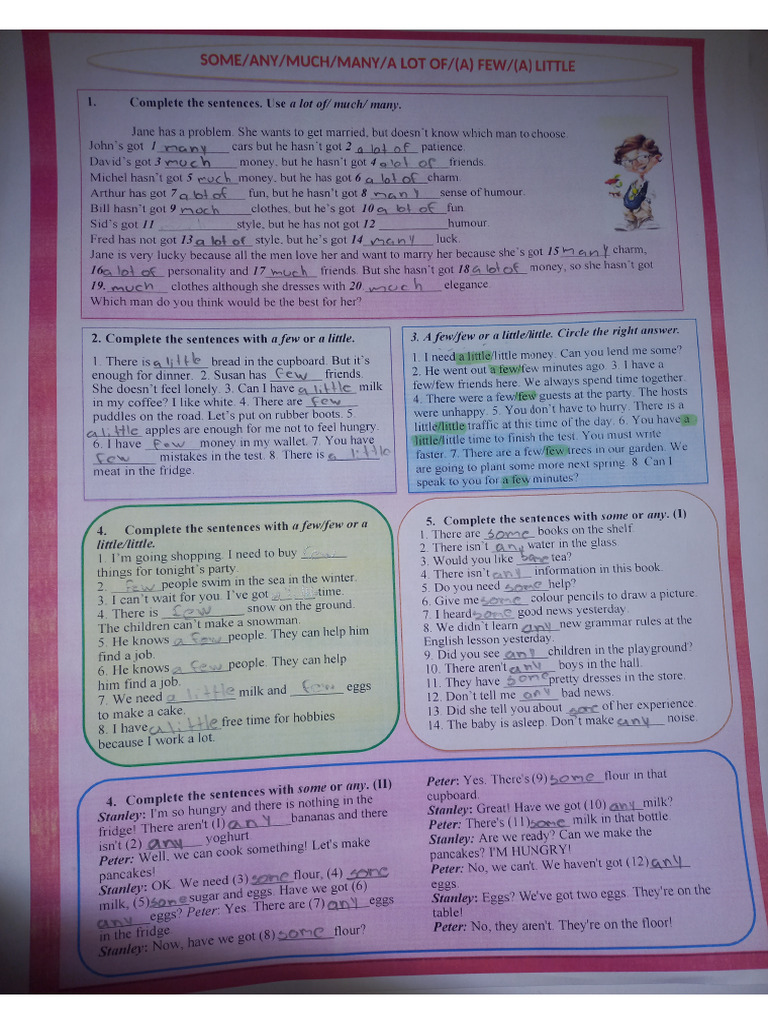 SOME/ANY/MUCH/MANY/A LOT OF/(A) FEW/(A) LITTLE
1. Complete the sentences. Use a lot of/ much/ many.
Jane has a problem. She wants to get married, but doesn't know which man to choose.
John's got 1 many cars but he hasn't got 2 a lot of patience.
David's got 3 much money, but he hasn't got 4 a lot of friends.
Michel hasn't got 5 much money, but he has got 6 a lot of charm.
Arthur has got 7 a lot of fun, but he hasn't got 8 many sense of humour.
Bill hasn't got 9 much clothes, but he's got 10 a lot of fun.
Sid's got 11 style, but he has not got 12 humour.
Fred has not got 13 a lot of style, but he's got 14 many luck.
Jane is very lucky because all the men love her and want to marry her because she's got 15 many charm,
16 a lot of personality and 17 much friends. But she hasn't got 18 a lot of money, so she hasn't got
19. much clothes although she dresses with 20. much elegance.
Which man do you think would be the best for her?
2. Complete the sentences with a few or a little.
1. There is a little bread in the cupboard. But it's
enough for dinner. 2. Susan has few friends.
She doesn't feel lonely. 3. Can I have a little milk
in my coffee? I like white. 4. There are few
puddles on the road. Let's put on rubber boots. 5.
a little apples are enough for me not to feel hungry.
6. I have few money in my wallet. 7. You have
few mistakes in the test. 8. There is a little
meat in the fridge.
3. A few/few or a little/little. Circle the right answer.
1. I need a little/little money. Can you lend me some?
2. He went out a few/few minutes ago. 3. I have a
few/few friends here. We always spend time together.
4. There were a few/few guests at the party. The hosts
were unhappy. 5. You don't have to hurry. There is a
little/little traffic at this time of the day. 6. You have a
little/little time to finish the test. You must write
faster. 7. There are a few/few trees in our garden. We
are going to plant some more next spring. 8 Can I
speak to you for a few minutes?
4. Complete the sentences with a few/few or a
little/little.
1. I'm going shopping. I need to buy few
things for tonight's party.
2. few people swim in the sea in the winter.
3. I can't wait for you. I've got time.
4. There is few snow on the ground.
The children can't make a snowman.
5. He knows a few people. They can help him
find a job.
6. He knows a few people. They can help
him find a job.
7. We need a little milk and few eggs
to make a cake.
8. I have a little free time for hobbies
because I work a lot.
5. Complete the sentences with some or any. (I)
1. There are some books on the shelf.
2. There isn't any water in the glass.
3. Would you like some tea?
4. There isn't any information in this book.
5. Do you need some help?
6. Give me some colour pencils to draw a picture.
7. I heard some good news yesterday.
8. We didn't learn any new grammar rules at the
English lesson yesterday.
9. Did you see any children in the playground?
10. There aren't any boys in the hall.
11. They have some pretty dresses in the store.
12. Don't tell me any bad news.
13. Did she tell you about some of her experience.
14. The baby is asleep. Don't make any noise.
4. Complete the sentences with some or any. (II)
Stanley: I'm so hungry and there is nothing in the
fridge! There aren't (1) any bananas and there
isn't (2) any yoghurt.
Peter: Well, we can cook something! Let's make
pancakes!
Stanley: OK. We need (3) some flour, (4) some
milk, (5) some sugar and eggs. Have we got (6)
any eggs? Peter: Yes. There are (7) any eggs
in the fridge.
Stanley: Now, have we got (8) some flour?
Peter: Yes. There's (9) some flour in that
cupboard.
Stanley: Great! Have we got (10) any milk?
Peter: There's (11) some milk in that bottle.
Stanley: Are we ready? Can we make the
pancakes? I'M HUNGRY!
Peter: No, we can't. We haven't got (12) any
eggs.
Stanley: Eggs? We've got two eggs. They're on the
table!
Peter: No, they aren't. They're on the floor!